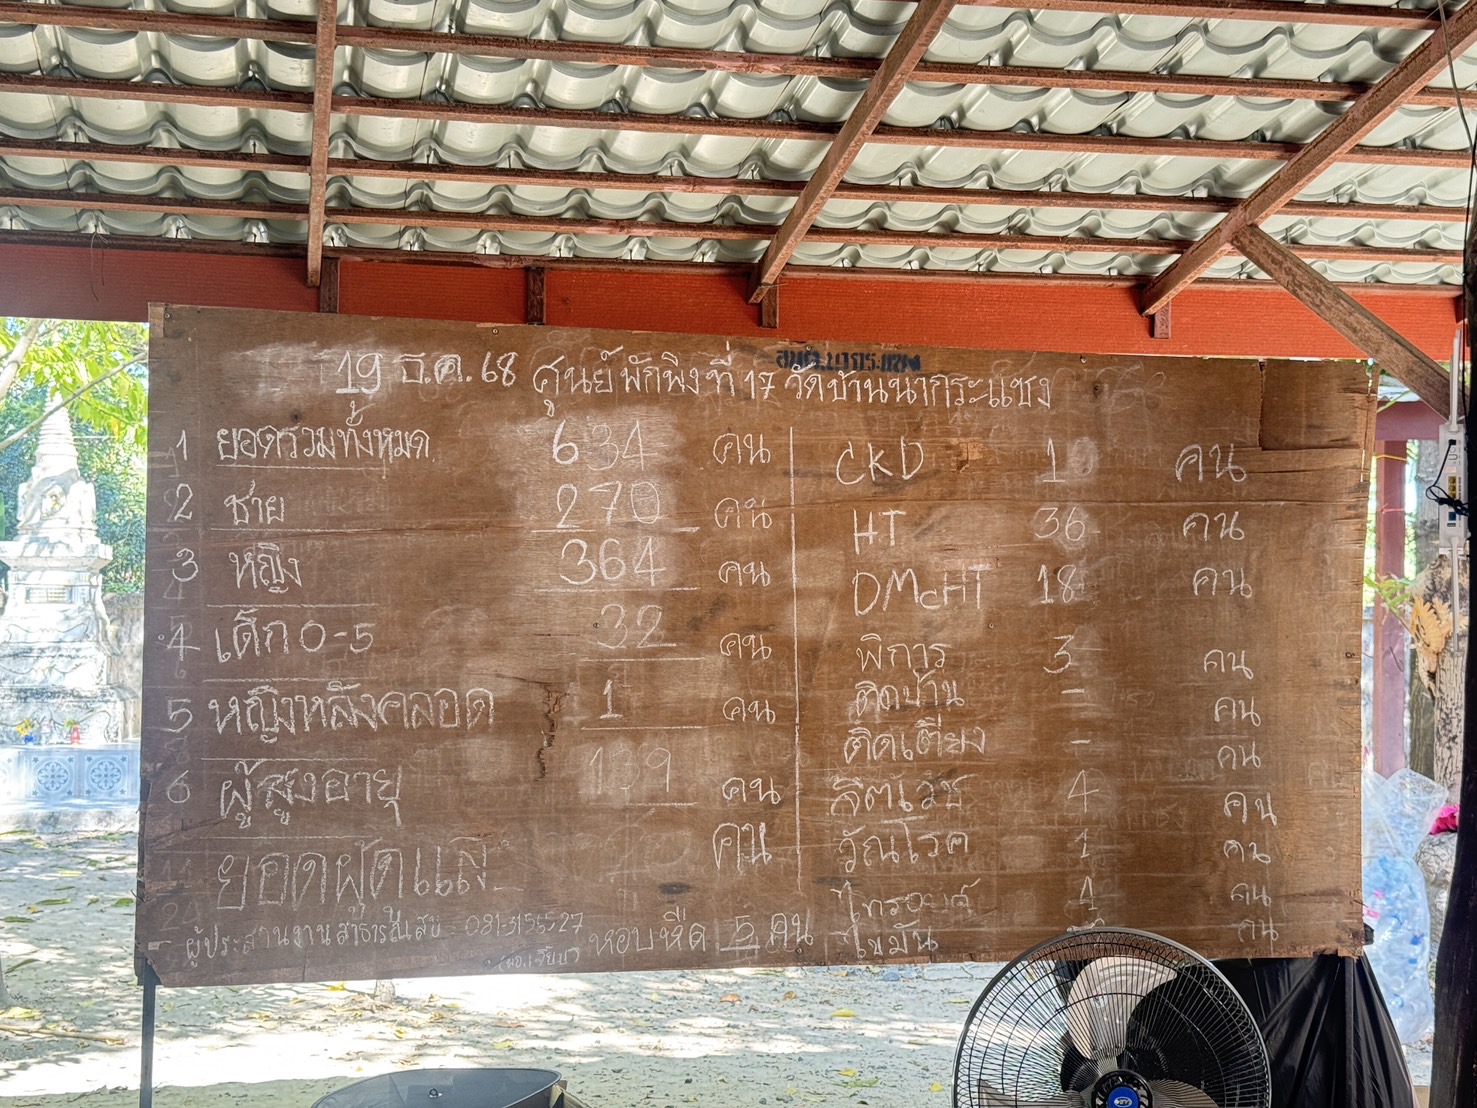 19 ธ.ค. 68 ศูนย์พักพิงที่ 17 วัดบ้านนากระแชง
1 ยอดรวมทั้งหมด 634 คน
2 ชาย 270 คน
3 หญิง 364 คน
4 เด็ก 0-5 32 คน
5 หญิงหลังคลอด 1 คน
6 ผู้สูงอายุ 139 คน
คน
ผู้ประสานงานสาธารณสุข
หอบหืด 5 คน
CKD 10 คน
HT 36 คน
DMcHT 18 คน
พิการ 3 คน
ติดบ้าน - คน
ติดเตียง - คน
จิตเวช 4 คน
วัณโรค 1 คน
ไทรอยด์ 4 คน
ไขมัน คน